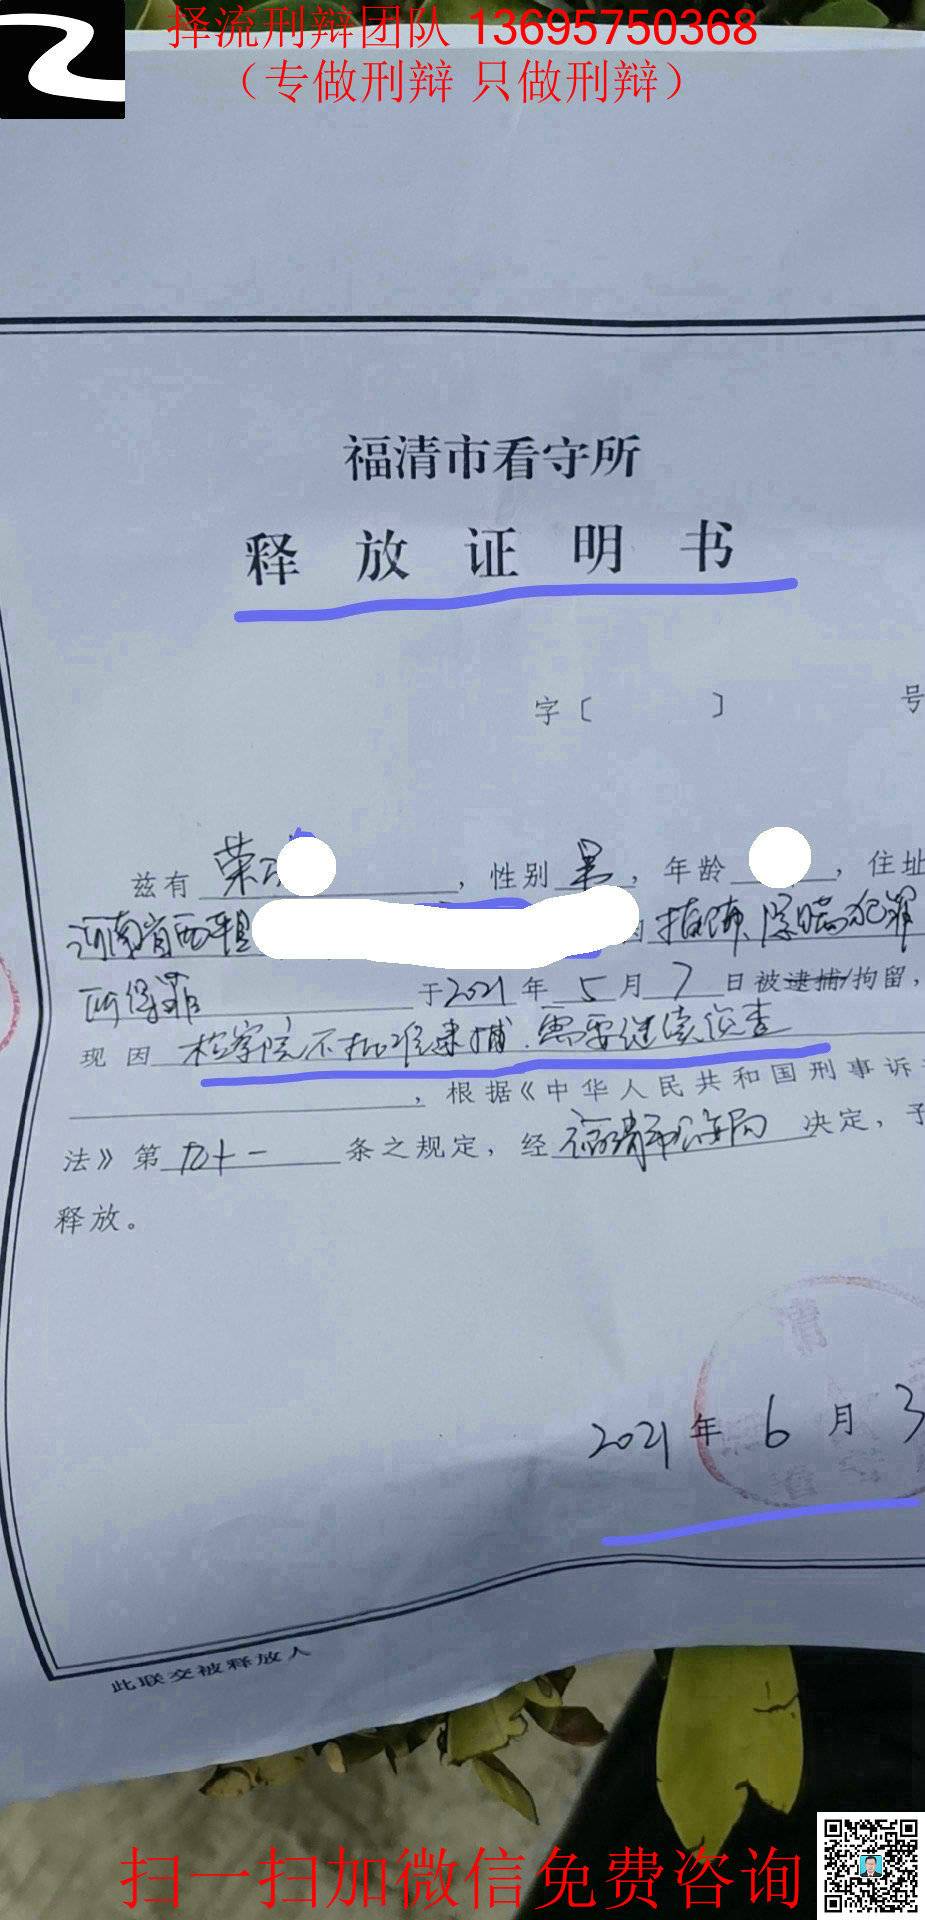 择流刑辩团队 13695750368
（专做刑辩 只做刑辩）
福清市看守所
释放证明书
字〔 〕 号
兹有 荣 ，性别 男 ，年龄 ，住址
河南省西平县 掩饰、隐瞒犯罪
所得罪 于2021年5月7日被逮捕/拘留，
现因 检察院不批准逮捕，需要继续侦查
，根据《中华人民共和国刑事诉
法》第 九十一 条之规定，经 福清市公安局 决定，予
释放。
2021年6月3
此联交被释放人
扫一扫加微信免费咨询